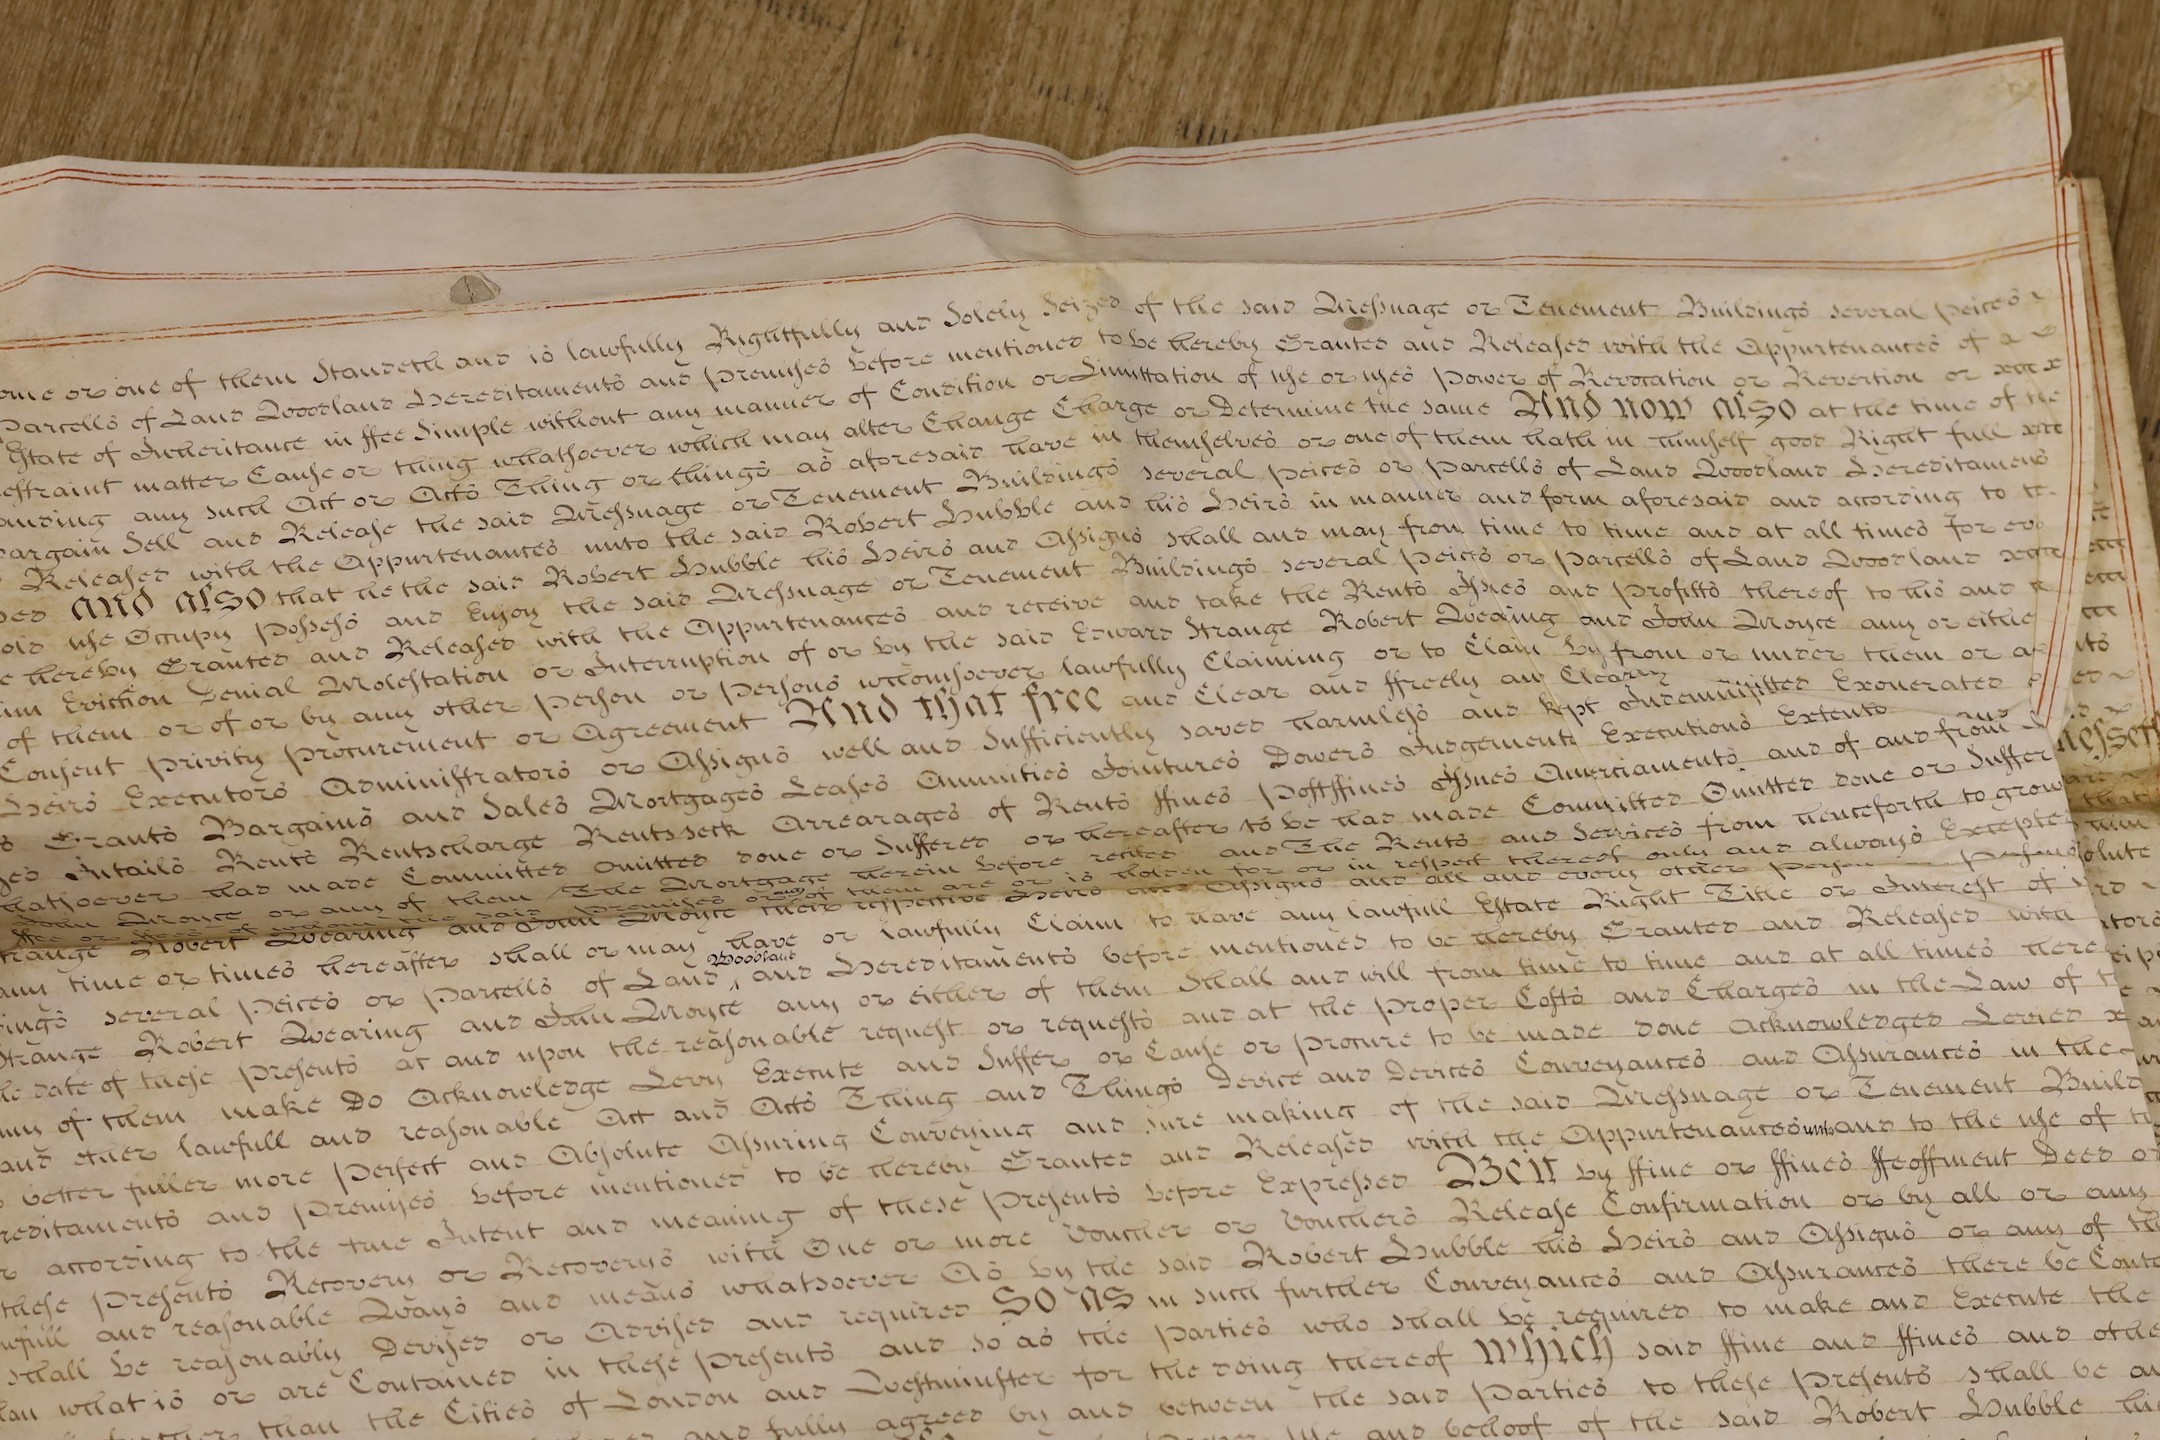 ome or one of them Standeth and is lawfully Rightfully and Solely Seized of the said Messuage or Tenement Buildings several peices
Parcells of Land Woodland Hereditaments and premises before mentioned to be hereby Granted and Released with the Appurtenances of a
Estate of Inheritance in ffee Simple without any manner of Condition or Limittation of use or uses power of Revocation or Revertion or
estraint matter Cause or thing whatsoever which may alter Change Charge or Determine the same And now also at the time of the
anding any such Act or Acts Thing or things as aforesaid have in themselves or one of them hath in himself good Right full
Bargain Sell and Release the said Messuage or Tenement Buildings several peices or parcells of Land Woodland Hereditaments
Released with the Appurtenances unto the said Robert Hubble and his Heirs in manner and form aforesaid and according to
sed and also that he the said Robert Hubble his Heirs and Assigns shall and may from time to time and at all times for ev
old use Occupy possess and Enjoy the said Messuage or Tenement Buildings several peices or parcells of Land Woodland
e hereby Granted and Released with the Appurtenances and receive and take the Rents Issues and profitts thereof to his and
im Eviction Denial Molestation or Interruption of or by the said Edward Strange Robert Wearing and John Moyse any or eithe
of them or of or by any other person or persons whomsoever lawfully Claiming or to Claim by from or under them or a
Consent privity procurement or Agreement And that free and Clear and ffreely and Clearly
Heirs Executors Administrators or Assigns well and Sufficiently saved harmless and kept Indemnifitted Exonerated
s Grants Bargains and Sales Mortgages Leases Annuities Jointures Dowers Judgements Executions Extents and
ges Intails Rents Rentscharge Rentsseck Arrearages of Rents ffines postffines Issues Amerciaments and of and from
whatsoever had made Committed omitted done or Suffered or hereafter to be had made Committed Omitted done or Suffer
John Moyse or any of them The Mortgage herein before recited and The Rents and Services from henceforth to grow
ffee or ffees of whom the said premises or any of them are or is holden for or in respect thereof only and always Excepted
trange Robert Wearing and John Moyse their respective Heirs and Assigns and all and every other person or persons
any time or times hereafter shall or may have or lawfully Claim to have any lawfull Estate Right Title or Interest of
ings several peices or parcells of Land Woodland and Hereditaments before mentioned to be hereby Granted and Released with
Strange Robert Wearing and John Moyse any or either of them Shall and will from time to time and at all times here
he date of these presents at and upon the reasonable request or requests and at the proper Costs and Charges in the Law of
any of them make Do Acknowledge Levy Execute and Suffer or Cause or procure to be made done acknowledged Levied
and other lawfull and reasonable Act and Acts Thing and Things Device and Devices Conveyances and Assurances in the
better fuller more perfect and Absolute Assuring Conveying and sure making of the said Messuage or Tenement Build
reditaments and premises before mentioned to be hereby Granted and Released with the Appurtenances unto and to the use of
r according to the true Intent and meaning of these presents before Expressed Be it by ffine or ffines ffeoffment Deed or
these presents Recovery or Recoverys with One or more Voucher or Vouchers Release Confirmation or by all or any
wfull and reasonable Ways and means whatsoever As by the said Robert Hubble his Heirs and Assigns or any of th
shall be reasonably Devised or Advised and required So as in such further Conveyances and Assurances there be Conta
han what is or are Contained in these presents and so as the parties who shall be required to make and Execute the
further than the Cities of London and Westminster for the doing thereof which said ffine and ffines and othe
and fully agreed by and between the said parties to these presents shall be an
use and behoof of the said Robert Hubble his